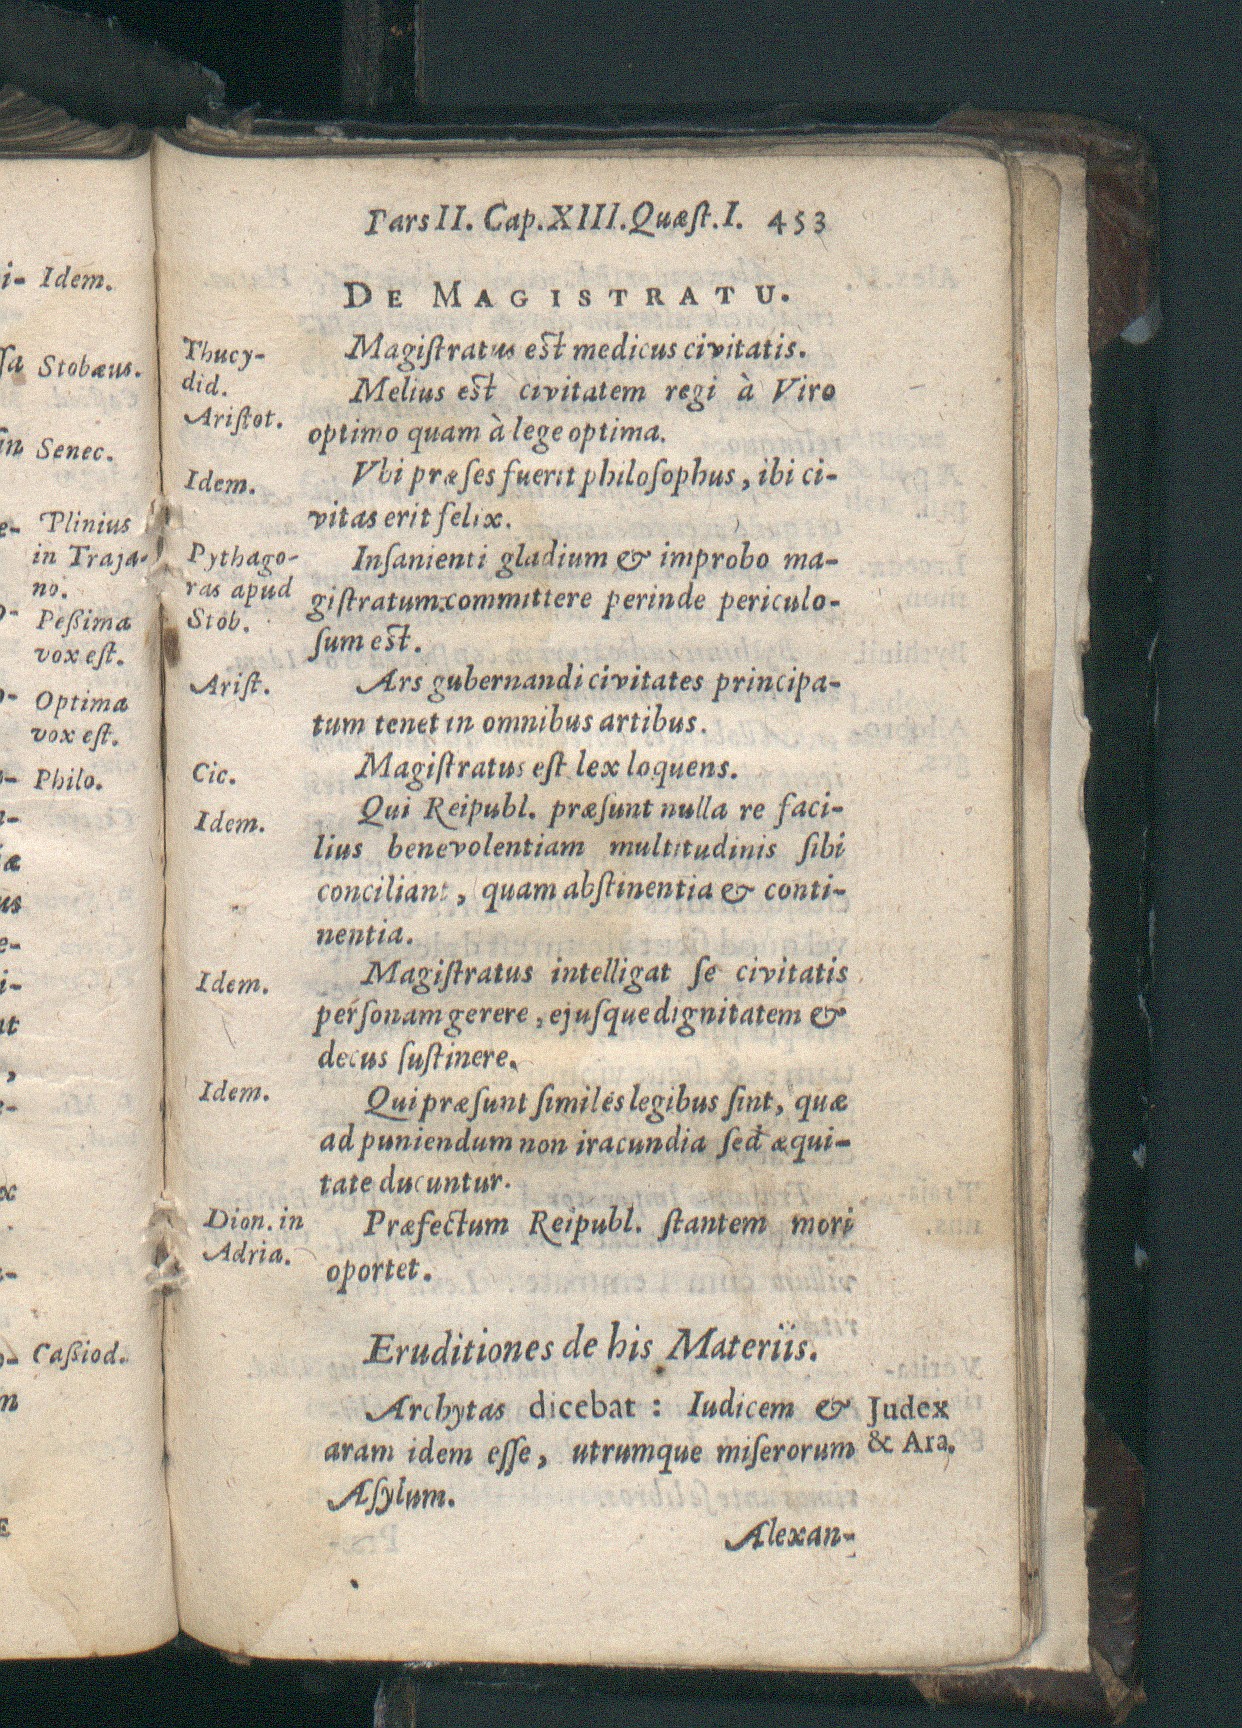 i- Idem.
ſa Stobæus.
in Senec.
e- Plinius
in Traja-
no.
Peßima
vox eſt.
Optima
vox eſt.
Philo.
iæ
us
e-
i-
,
e-
x
Caßiod.
Pars II. Cap. XIII. Quæſt. I. 453
DE MAGISTRATU.
Thucy-
did.
Magiſtratus eſt medicus civitatis.
Ariſtot.
Melius eſt civitatem regi à Viro
optimo quam à lege optima.
Idem.
Vbi præſes fuerit philoſophus, ibi ci-
vitas erit felix.
Pythago-
ras apud
Stob.
Inſanienti gladium & improbo ma-
giſtratum committere perinde periculo-
ſum eſt.
Ariſt.
Ars gubernandi civitates principa-
tum tenet in omnibus artibus.
Cic.
Magiſtratus eſt lex loquens.
Idem.
Qui Reipubl. præſunt nulla re faci-
lius benevolentiam multitudinis ſibi
conciliant, quam abſtinentia & conti-
nentia.
Idem.
Magiſtratus intelligat ſe civitatis
perſonam gerere, ejuſque dignitatem &
decus ſuſtinere.
Idem.
Qui præſunt ſimiles legibus ſint, quæ
ad puniendum non iracundia ſed æqui-
tate ducuntur.
Dion. in
Adria.
Præfectum Reipubl. ſtantem mori
oportet.
Eruditiones de his Materiis.
Archytas dicebat : Iudicem &
aram idem eſſe, utrumque miſerorum
Aſylum.
Judex
& Ara.
Alexan-